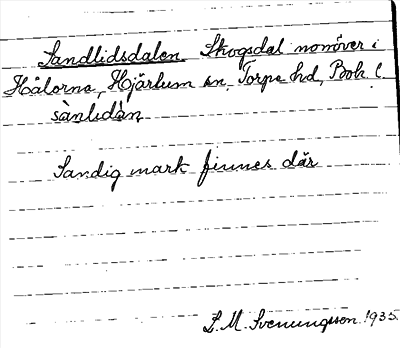 Sandlidsdalen Skogsdal nomöver i
Hålorna, Hjärtum sn, Torpe hd, Boh. l.
sànlidàn
Sandig mark finnes där
L. M. Svenungsson 1935